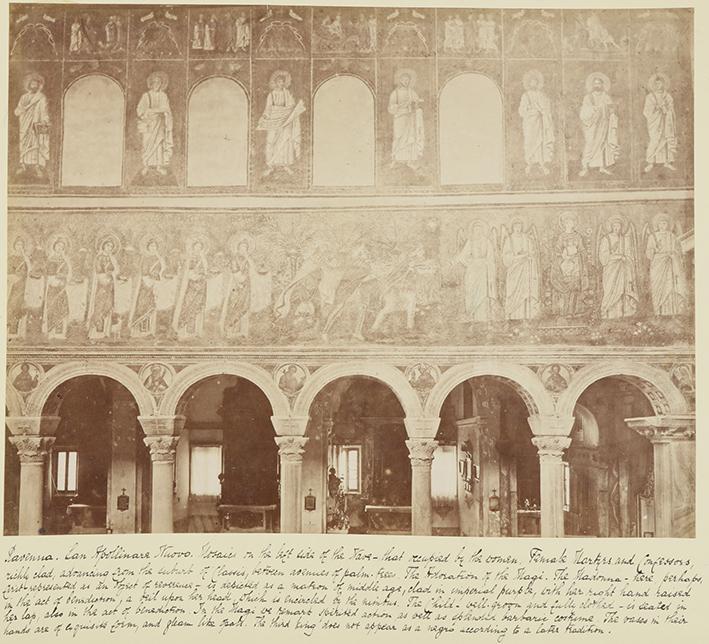 Ravenna. San Apollinare Nuovo. Mosaics on the left side of the Nave - that occupied by the women. Female Martyrs and Confessors,
richly clad, advancing from the suburb of Classis, between avenues of palm-tree. The Adoration of the Magi. The Madonna - here, perhaps,
first represented as an object of reverence - is depicted as a matron of middle age, clad in imperial purple, with her right hand raised
in the act of benediction, a veil upon her head, which is encircled by the nimbus. The child - well-grown and fully clothed - is seated in
her lap, also in the act of benediction. In the Magi we remark obvious as well as splendid barbaric costume. The vases in their
hands are of exquisite form, and gleam like opals. The third king does not appear as a negro according to a later tradition.